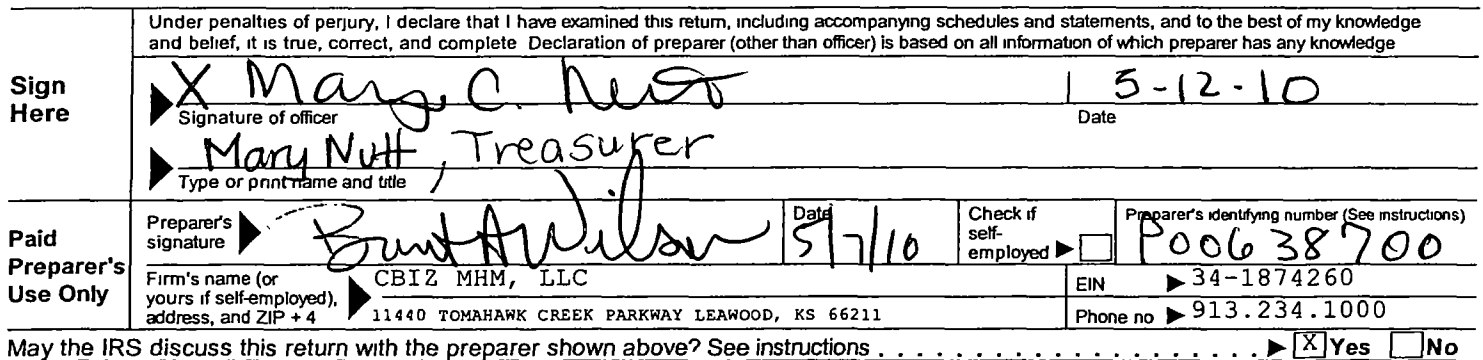 Under penalties of perjury, I declare that I have examined this return, including accompanying schedules and statements, and to the best of my knowledge
and belief, it is true, correct, and complete Declaration of preparer (other than officer) is based on all information of which preparer has any knowledge
Sign Here
X Mary C. Nutt
5-12-10
Signature of officer
Date
Mary Nutt, Treasurer
Type or print name and title
Paid Preparer's Use Only
Preparer's signature
Wilson
Date
5/7/10
Check if self-employed
Preparer's identifying number (See instructions)
P00638700
Firm's name (or yours if self-employed), address, and ZIP + 4
CBIZ MHM, LLC
EIN
34-1874260
11440 TOMAHAWK CREEK PARKWAY LEAWOOD, KS 66211
Phone no
913.234.1000
May the IRS discuss this return with the preparer shown above? See instructions . . . . . . . . . . . . . . . . . . . . . X Yes No